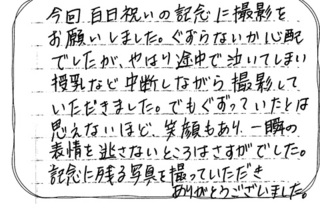 今回百日祝いの記念に撮影を
お願いしました。ぐずらないか心配
でしたが、やはり途中で泣いてしまい
授乳など中断しながら撮影して
いただきました。でもぐずっていたとは
思えないほど、笑顔もあり一瞬の
表情を逃さないところはさすがでした。
記念に残る写真を撮っていただき
ありがとうございました。